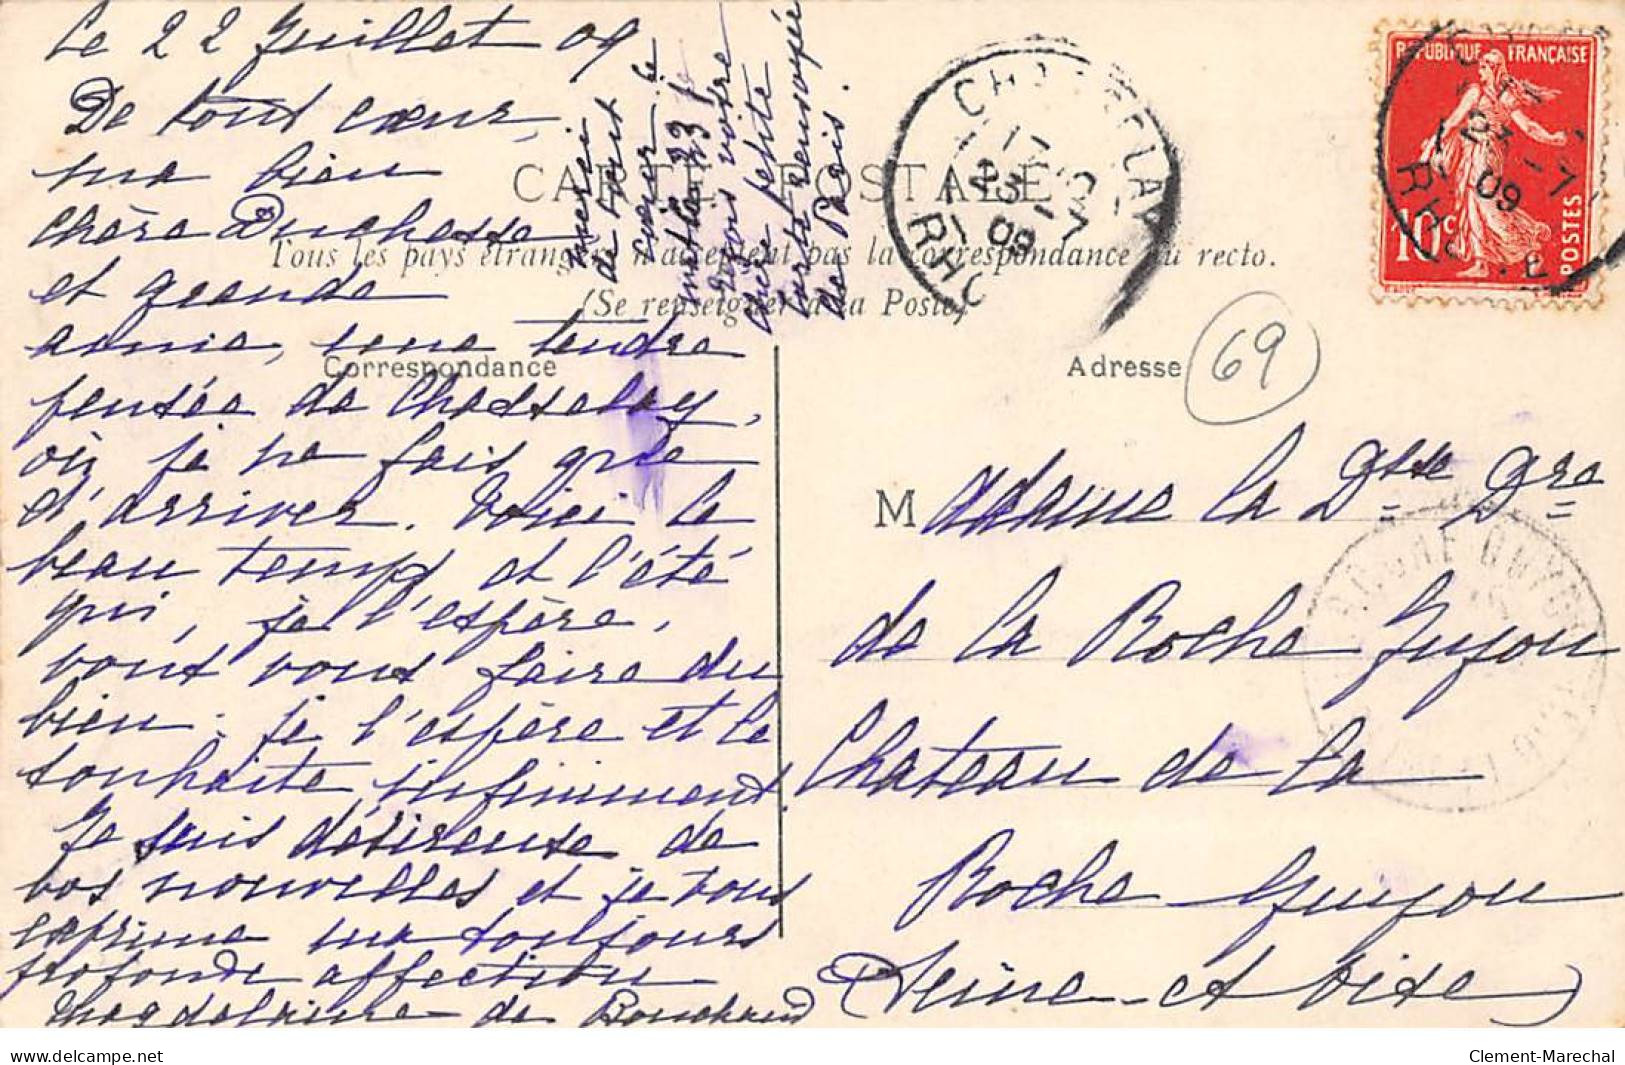 Le 22 Juillet 09
De tout cœur,
ma bien
chère Duchesse
et grande
amie, une tendre
pensée de Chasselay,
où je ne fais que
d'arriver. Voici le
beau temps et l'été
qui, je l'espère,
vont vous faire du
bien; je l'espère et le
souhaite infiniment.
Je suis désireuse de
vos nouvelles et je vous
exprime ma toujours
profonde affection
Magdelaine de
merci
de tout
cœur
le 23 je
reçois votre
chère petite
carte renvoyée
de Paris.
CARTE POSTALE
Tous les pays étrangers n'acceptent pas la correspondance au recto.
(Se renseigner à la Poste)
Correspondance
Adresse
69
RÉPUBLIQUE FRANÇAISE
10c
POSTES
CHASSELAY
23
7
09
RHO
23
7
09
RH
Madame la Dsse Dre
de la Roche Guyon
Chateau de la
Roche Guyon
(Seine et Oise)
delcampe.net
Clement-Marechal